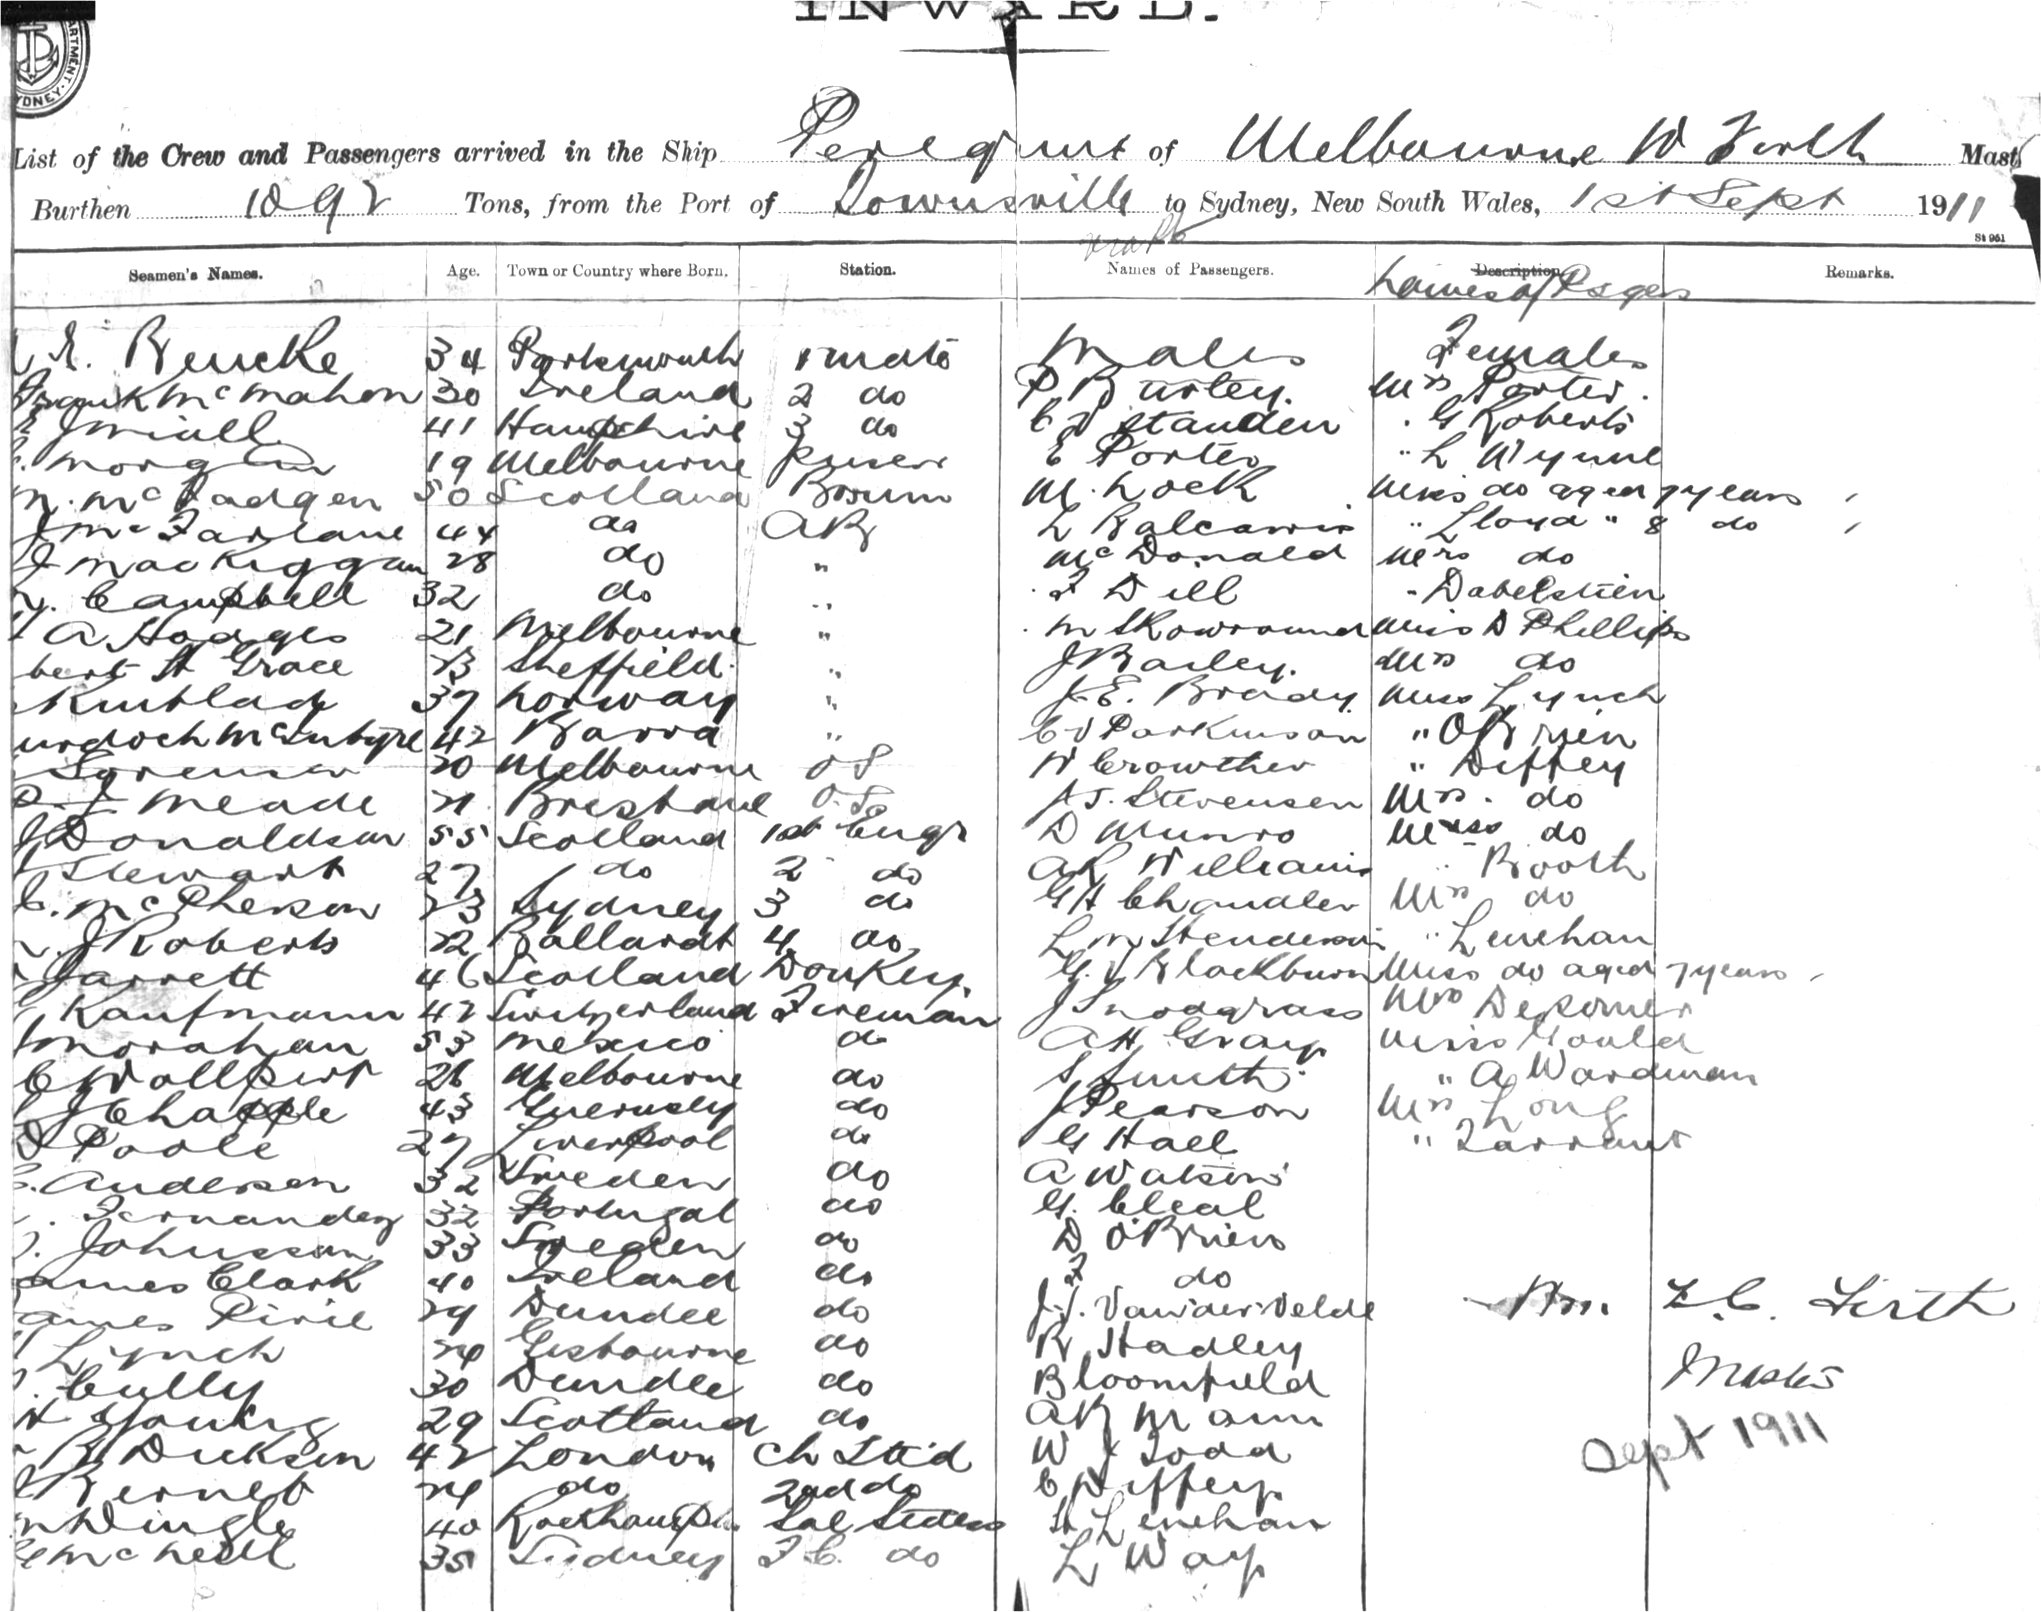 INWARD.
List of the Crew and Passengers arrived in the Ship Peregrine of Melbourne W Firth Mast
Burthen 1092 Tons, from the Port of Townsville to Sydney, New South Wales, 1st Sept 1911
St 961
Seamen's Names. Age. Town or Country where Born. Station. Names of Passengers. Description Remarks.
Names of Psgers
Beucke 34 Portsmouth 1 mate Males Females
Frank McMahon 30 Ireland 2 do P Burley. Mrs Porter.
J Miall 41 Hampshire 3 do C J Standen " G Roberts
Morgan 19 Melbourne Purser E Porter " L Wynne
N. McPadgen 50 Scotland Bosun M. Lock Miss do aged 7 years
J McFarlane 44 do AB L Balcarris " Lloyd " 8 do
J MacKiggan 28 do " McDonald Mrs do
Campbell 32 do " F Dill " Dabelstien
A Hodges 21 Melbourne " M Skowround Miss D Phellips
bert H Grace 23 Sheffield " J Bailey. Mrs do
39 Norway " J. E. Brady Miss Lynch
urdoch McIntyre 42 Barra " C J Parkinson " O'Brien
Sorensen 20 Melbourne OS W Crowther " Diffey
J Meade 21 Brisbane O.S. A. J. Stevensen Mrs. do
J Donaldson 55 Scotland 1st Engr D Munro Miss do
Stewart 27 do 2 do A R Williams " Booth
C. McPherson 23 Sydney 3 do G H Chandler Mrs do
J Roberts 22 Ballarat 4 do L M Henderson " Lenehan
Jarrett 46 Scotland Donkey G. J Blackburn Miss do aged 7 years
Kaufmann 42 Switzerland Fireman J Snodgrass Mrs
Morahan 53 Mexico do A H Gray Miss Gould
C 26 Melbourne do S Smith. " A Wardman
J Chapple 43 Guernsey do J Pearson Mrs Long
D Poole 27 Liverpool do G Hall " Tarrant
Andersen 32 Sweden do A Watson
Fernandez 32 Portugal do G. Cleal
Johnsson 33 Sweden do D O'Brien
ames Clark 40 Ireland do F do
ames Pirie 29 Dundee do J. J. Van der Velde Wm. E. C. Firth
Lynch 24 Gisbourne do R Hadley
Cully 30 Dundee do Bloomfield Master
Young 29 Scotland do A R Mann
B Dickson 42 London Ch Std W J Todd Sept 1911
J Bernet 24 do 2nd do C Diffey
Dingle 40 Sal H Lenehan
McNeill 35 Sidney F. C. do L Way